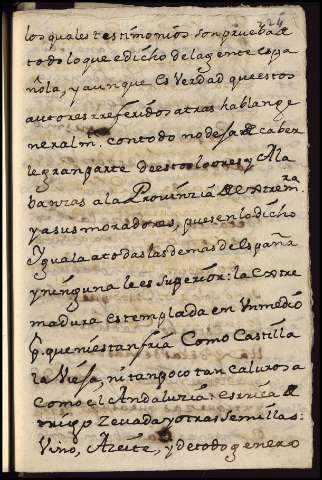 224
los quales testimonios son prueba de
todo lo que e dicho de la gente espa
ñola, y aunque es verdad que estos
autores rreferidos atras hablan ge
neralm. con todo no desa de caber
le gran parte de estos loores y Ala
banzas a la Provinzia de extrem.ra
y a sus moradores, pues en lo dicho
Yguala a todas las demas de España
y ninguna le es superior: la extre
madura es templada en Vn medio
q. que ni es tan fria Como Castilla
la Viesa, ni tan poco tan calurosa
Como el Andaluzia: es rrica de
trigo Zevada y otras semillas:
Vino, Azeite, y de todo genero